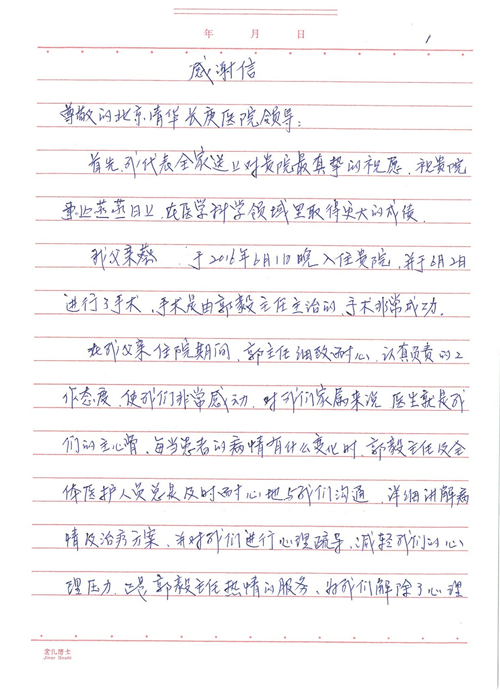 年 月 日
1
感谢信
尊敬的北京清华长庚医院领导:
首先,我代表全家送上对贵院最真挚的祝愿,祝贵院
事业蒸蒸日上,在医学科学领域里取得更大的成绩.
我父亲蔡 于2016年6月1日晚入住贵院,并于6月2日
进行了手术,手术是由郭毅主任主治的,手术非常成功.
在我父亲住院期间,郭主任细致耐心,认真负责的工
作态度,使我们非常感动,对我们家属来说,医生就是我
们的主心骨,每当患者的病情有什么变化时,郭毅主任及全
体医护人员总是及时耐心地与我们沟通,详细讲解病
情及治疗方案,并对我们进行心理疏导,减轻我们的心
理压力,这是郭毅主任热情的服务,为我们解除了心理